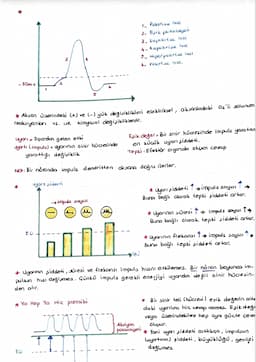 1. Polarize hal
2. Eşik potansiyeli
3. Depolarize hal
4. Repolarize hal
5. Hiperpolarize hal
6. Polarize hal
* Akson üzerindeki (+) ve (-) yük değişiklikleri elektriksel,
reaksiyonları vs. ise kimyasal değişikliklerdir.
Uyarı = Dışarıdan gelen etki
Uyartı (impuls) = Uyarının sinir hücresinde
yarattığı değişiklik
Eşik değer = Bir sinir hücresinde impuls yaratan
en küçük uyarı şiddeti.
Tepki = Efektör organda oluşan cevap
NOT: Bir nöronda impuls dendritten aksona doğru ilerler.
* Uyarı şiddeti
→ impuls sayısı
* Uyarının şiddeti ↑ → impuls sayısı ↑ →
Buna bağlı olarak tepki şiddeti artar.
* Uyarının süresi ↑ → impuls sayısı ↑ →
Buna bağlı olarak tepki şiddeti artar.
* Uyarının frekansı ↑ → impuls sayısı ↑
Buna bağlı tepki şiddeti artar.
* Uyarının şiddeti, süresi ve frekansı impuls hızını etkilemez. Bir nöron boyunca im-
puls hızı değişmez. Çünkü impuls gerekli enerjiyi uyarıdan değil sinir hücresin-
den alır.
* Ya Hep Ya Hiç prensibi
Aksiyon
potansiyeli
* Bir sinir teli (hücresi) eşik değerin altın-
daki uyarıya hiç cevap vermez. Eşik değer
veya üzerindekilere hep aynı şiddette cevap
oluşur.
* Yani uyarı şiddeti arttıkça, impulsun
(uyartının) şiddeti, büyüklüğü, genliği
değişmez.